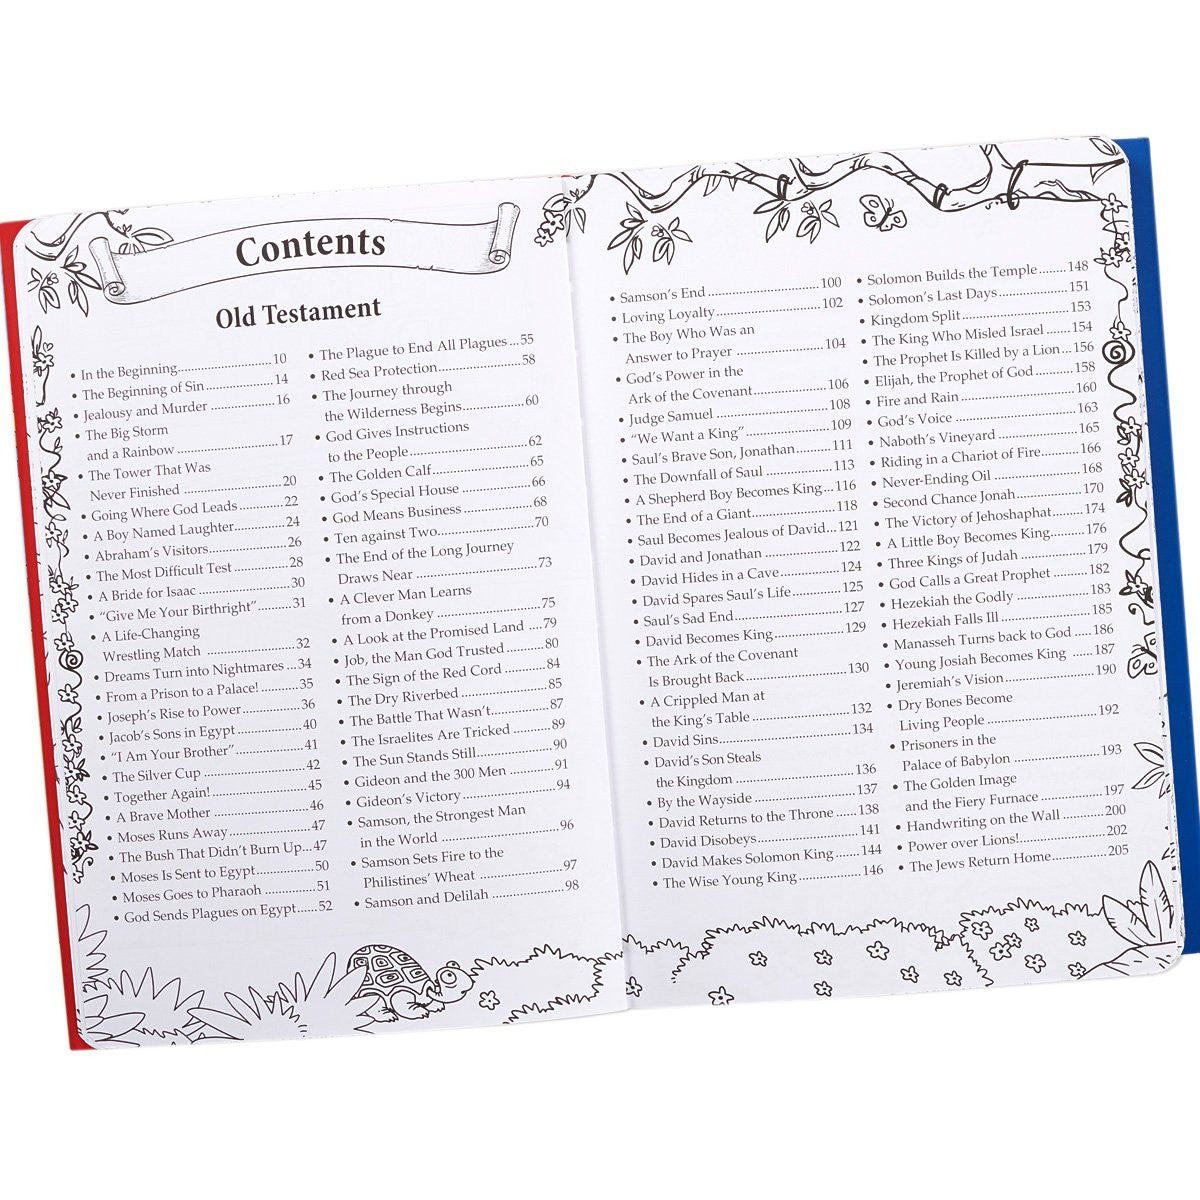 Contents
Old Testament
• In the Beginning..........................10
• The Beginning of Sin..................14
• Jealousy and Murder .................16
• The Big Storm
and a Rainbow ...........................17
• The Tower That Was
Never Finished ..........................20
• Going Where God Leads...........22
• A Boy Named Laughter.............24
• Abraham's Visitors.....................26
• The Most Difficult Test..............28
• A Bride for Isaac ........................30
• "Give Me Your Birthright".........31
• A Life-Changing
Wrestling Match ........................32
• Dreams Turn into Nightmares ...34
• From a Prison to a Palace! .........35
• Joseph's Rise to Power...............36
• Jacob's Sons in Egypt ................40
• "I Am Your Brother"..................41
• The Silver Cup ...........................42
• Together Again! .........................45
• A Brave Mother .........................46
• Moses Runs Away.....................47
• The Bush That Didn't Burn Up...47
• Moses Is Sent to Egypt...............50
• Moses Goes to Pharaoh .............51
• God Sends Plagues on Egypt......52
• The Plague to End All Plagues ...55
• Red Sea Protection.....................58
• The Journey through
the Wilderness Begins................60
• God Gives Instructions
to the People..............................62
• The Golden Calf.........................65
• God's Special House ..................66
• God Means Business .................68
• Ten against Two.........................70
• The End of the Long Journey
Draws Near ...............................73
• A Clever Man Learns
from a Donkey ...........................75
• A Look at the Promised Land ....79
• Job, the Man God Trusted ..........80
• The Sign of the Red Cord ...........84
• The Dry Riverbed.......................85
• The Battle That Wasn't...............87
• The Israelites Are Tricked ..........89
• The Sun Stands Still....................90
• Gideon and the 300 Men ...........91
• Gideon's Victory ........................94
• Samson, the Strongest Man
in the World ..............................96
• Samson Sets Fire to the
Philistines' Wheat ......................97
• Samson and Delilah ..................98
• Samson's End ............................100
• Loving Loyalty...........................102
• The Boy Who Was an
Answer to Prayer .......................104
• God's Power in the
Ark of the Covenant...................106
• Judge Samuel .............................108
• "We Want a King".....................109
• Saul's Brave Son, Jonathan.........111
• The Downfall of Saul .................113
• A Shepherd Boy Becomes King...116
• The End of a Giant.....................118
• Saul Becomes Jealous of David...121
• David and Jonathan ...................122
• David Hides in a Cave................124
• David Spares Saul's Life.............125
• Saul's Sad End............................127
• David Becomes King..................129
• The Ark of the Covenant
Is Brought Back .........................130
• A Crippled Man at
the King's Table .........................132
• David Sins..................................134
• David's Son Steals
the Kingdom .............................136
• By the Wayside ..........................137
• David Returns to the Throne ......138
• David Disobeys..........................141
• David Makes Solomon King.......144
• The Wise Young King .................146
• Solomon Builds the Temple ........148
• Solomon's Last Days ..................151
• Kingdom Split............................153
• The King Who Misled Israel .......154
• The Prophet Is Killed by a Lion...156
• Elijah, the Prophet of God ..........158
• Fire and Rain .............................160
• God's Voice ................................163
• Naboth's Vineyard .....................165
• Riding in a Chariot of Fire..........166
• Never-Ending Oil .......................168
• Second Chance Jonah.................170
• The Victory of Jehoshaphat.........174
• A Little Boy Becomes King.........176
• Three Kings of Judah .................179
• God Calls a Great Prophet .........182
• Hezekiah the Godly ...................183
• Hezekiah Falls Ill .......................185
• Manasseh Turns back to God .....186
• Young Josiah Becomes King ......187
• Jeremiah's Vision........................190
• Dry Bones Become
Living People ............................192
• Prisoners in the
Palace of Babylon .......................193
• The Golden Image
and the Fiery Furnace ................197
• Handwriting on the Wall ...........200
• Power over Lions!......................202
• The Jews Return Home..............205